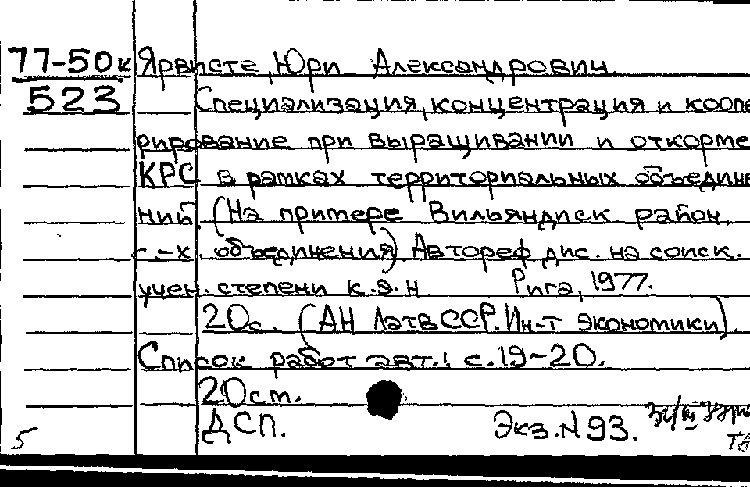 77-50к Ярвисте, Юри Александрович.
523 Специализация, концентрация и коопе
рирование при выращивании и откорме
КРС в рамках территориальных объедине
ний. (На примере Вильяндиск район.
с.-х. объединения) Автореф дис. на соиск.
учен. степени к.э.н Рига, 1977.
20с. (АН ЛатвССР. Ин-т экономики).
Список работ авт.: с.19-20.
20см.
ДСП. Экз.№93.
5